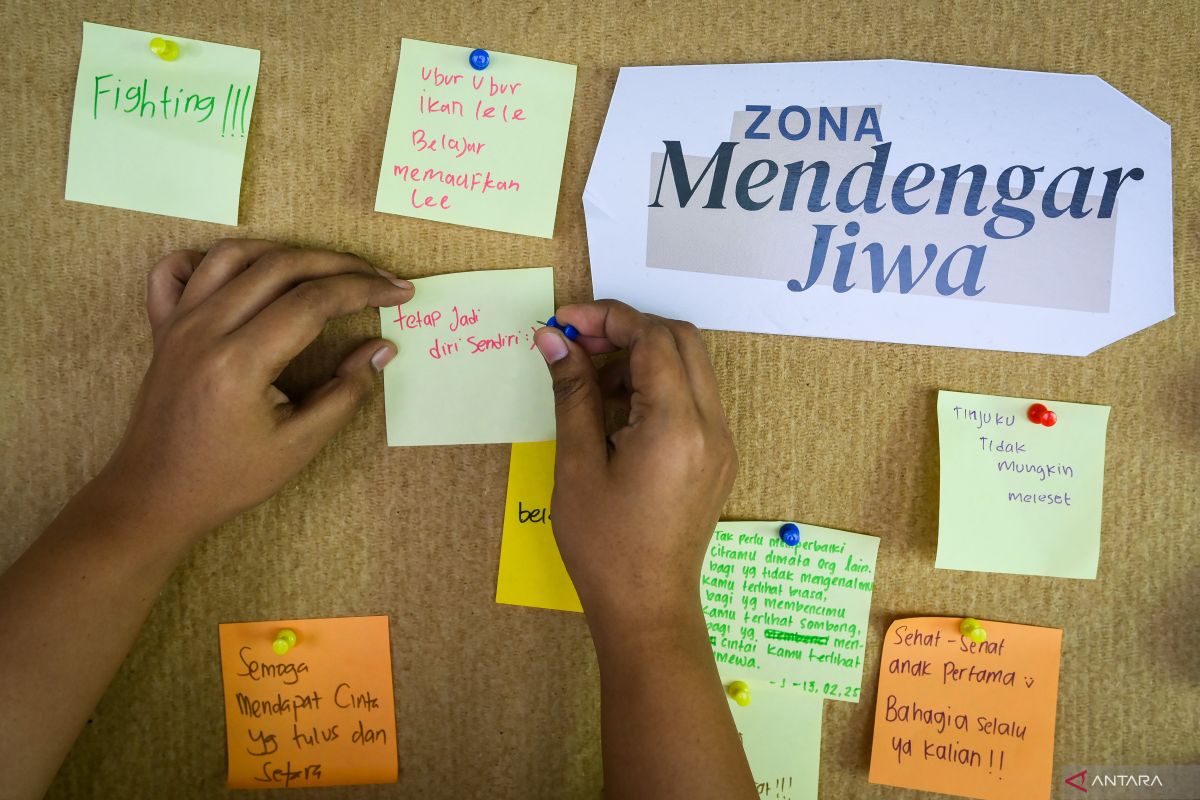 Fighting!!!
Ubur Ubur
ikan lele
Belajar
memaafkan
Lee
ZONA
Mendengar
Jiwa
tetap jadi
diri sendiri :)
Tinjuku
Tidak
mungkin
meleset
Tak perlu memperbaiki
citramu dimata org lain.
bagi yg tidak mengenalmu
kamu terlihat biasa,
bagi yg membencimu
kamu terlihat sombong,
bagi yg men-
cintai kamu terlihat
13.02.25
Semoga
Mendapat Cinta
yg tulus dan
Setara
Sehat-Sehat
anak Pertama
Bahagia selalu
ya kalian!!
ANTARA